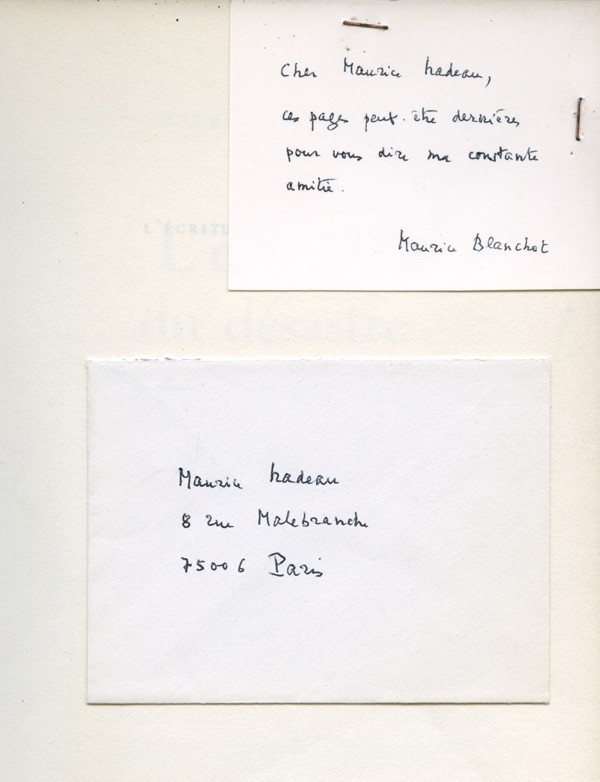 Cher Maurice Nadeau,
ces pages peut-être dernières
pour vous dire ma constante
amitié.
Maurice Blanchot
L'ÉCRITU
du désastre
Maurice Nadeau
8 rue Malebranche
75006 Paris